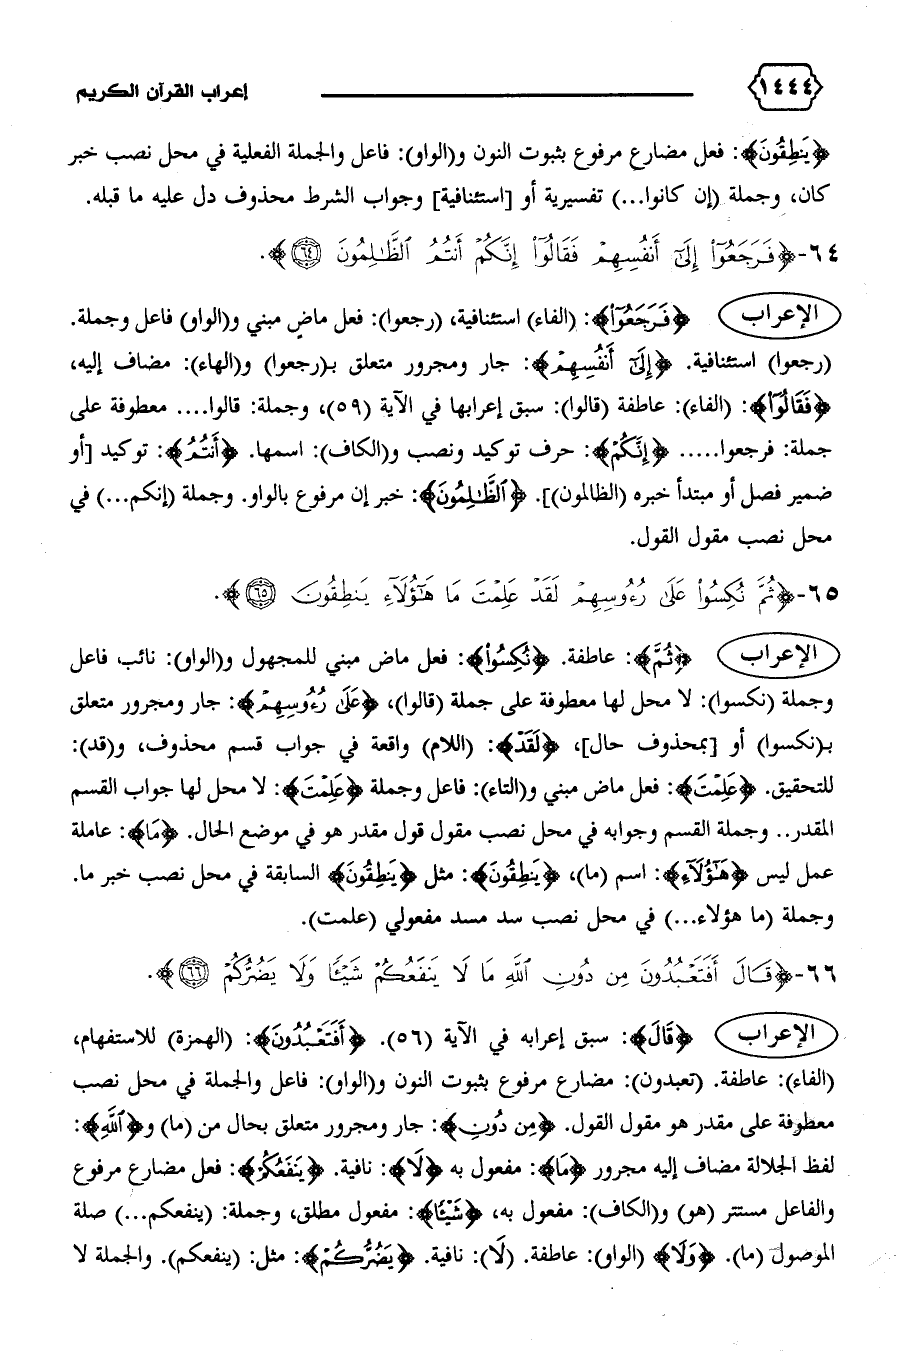 ١٤٤٤ إعراب القرآن الكريم
﴿يَنطِقُونَ﴾: فعل مضارع مرفوع بثبوت النون و(الواو): فاعل والجملة الفعلية في محل نصب خبر
كان، وجملة (إن كانوا...) تفسيرية أو [استئنافية] وجواب الشرط محذوف دل عليه ما قبله.
٦٤-﴿فَرَجَعُوٓا۟ إِلَىٰٓ أَنفُسِهِمْ فَقَالُوٓا۟ إِنَّكُمْ أَنتُمُ ٱلظَّـٰلِمُونَ ٦٤﴾.
الإعراب ﴿فَرَجَعُوٓا۟﴾: (الفاء) استئنافية، (رجعوا): فعل ماضٍ مبني و(الواو) فاعل وجملة.
(رجعوا) استئنافية. ﴿إِلَىٰٓ أَنفُسِهِمْ﴾: جار ومجرور متعلق بـ(رجعوا) و(الهاء): مضاف إليه،
﴿فَقَالُوٓا۟﴾: (الفاء): عاطفة (قالوا): سبق إعرابها في الآية (٥٩)، وجملة: قالوا.... معطوفة على
جملة: فرجعوا..... ﴿إِنَّكُمْ﴾: حرف توكيد ونصب و(الكاف): اسمها. ﴿أَنتُمُ﴾: توكيد [أو
ضمير فصل أو مبتدأ خبره (الظالمون)]. ﴿ٱلظَّـٰلِمُونَ﴾: خبر إن مرفوع بالواو. وجملة (إنكم...) في
محل نصب مقول القول.
٦٥-﴿ثُمَّ نُكِسُوا۟ عَلَىٰ رُءُوسِهِمْ لَقَدْ عَلِمْتَ مَا هَـٰٓؤُلَآءِ يَنطِقُونَ ٦٥﴾.
الإعراب ﴿ثُمَّ﴾: عاطفة. ﴿نُكِسُوا۟﴾: فعل ماض مبني للمجهول و(الواو): نائب، فاعل
وجملة (نكسوا): لا محل لها معطوفة على جملة (قالوا)، ﴿عَلَىٰ رُءُوسِهِمْ﴾: جار ومجرور متعلق
بـ(نكسوا) أو [بمحذوف حال]، ﴿لَقَدْ﴾: (اللام) واقعة في جواب قسم محذوف، و(قد):
للتحقيق. ﴿عَلِمْتَ﴾: فعل ماض مبني و(التاء): فاعل وجملة ﴿عَلِمْتَ﴾: لا محل لها جواب القسم
المقدر.. وجملة القسم وجوابه في محل نصب مقول قول مقدر هو في موضع الحال. ﴿مَا﴾: عاملة
عمل ليس ﴿هَـٰٓؤُلَآءِ﴾: اسم (ما)، ﴿يَنطِقُونَ﴾: مثل ﴿يَنطِقُونَ﴾ السابقة في محل نصب خبر ما.
وجملة (ما هؤلاء...) في محل نصب سد مسد مفعولي (علمت).
٦٦-﴿قَالَ أَفَتَعْبُدُونَ مِن دُونِ ٱللَّهِ مَا لَا يَنفَعُكُمْ شَيْـًٔا وَلَا يَضُرُّكُمْ ٦٦﴾.
الإعراب ﴿قَالَ﴾: سبق إعرابه في الآية (٥٦). ﴿أَفَتَعْبُدُونَ﴾: (الهمزة) للاستفهام،
(الفاء): عاطفة. (تعبدون): مضارع مرفوع بثبوت النون و(الواو): فاعل والجملة في محل نصب
معطوفة على مقدر هو مقول القول. ﴿مِن دُونِ﴾: جار ومجرور متعلق بحال من (ما) و﴿ٱللَّهِ﴾:
لفظ الجلالة مضاف إليه مجرور ﴿مَا﴾: مفعول به ﴿لَا﴾: نافية. ﴿يَنفَعُكُمْ﴾: فعل مضارع مرفوع
والفاعل مستتر (هو) و(الكاف): مفعول به، ﴿شَيْـًٔا﴾: مفعول مطلق، وجملة: (ينفعكم...) صلة
الموصول (ما). ﴿وَلَا﴾ (الواو): عاطفة. (لَا): نافية. ﴿يَضُرُّكُمْ﴾: مثل: (ينفعكم). والجملة لا